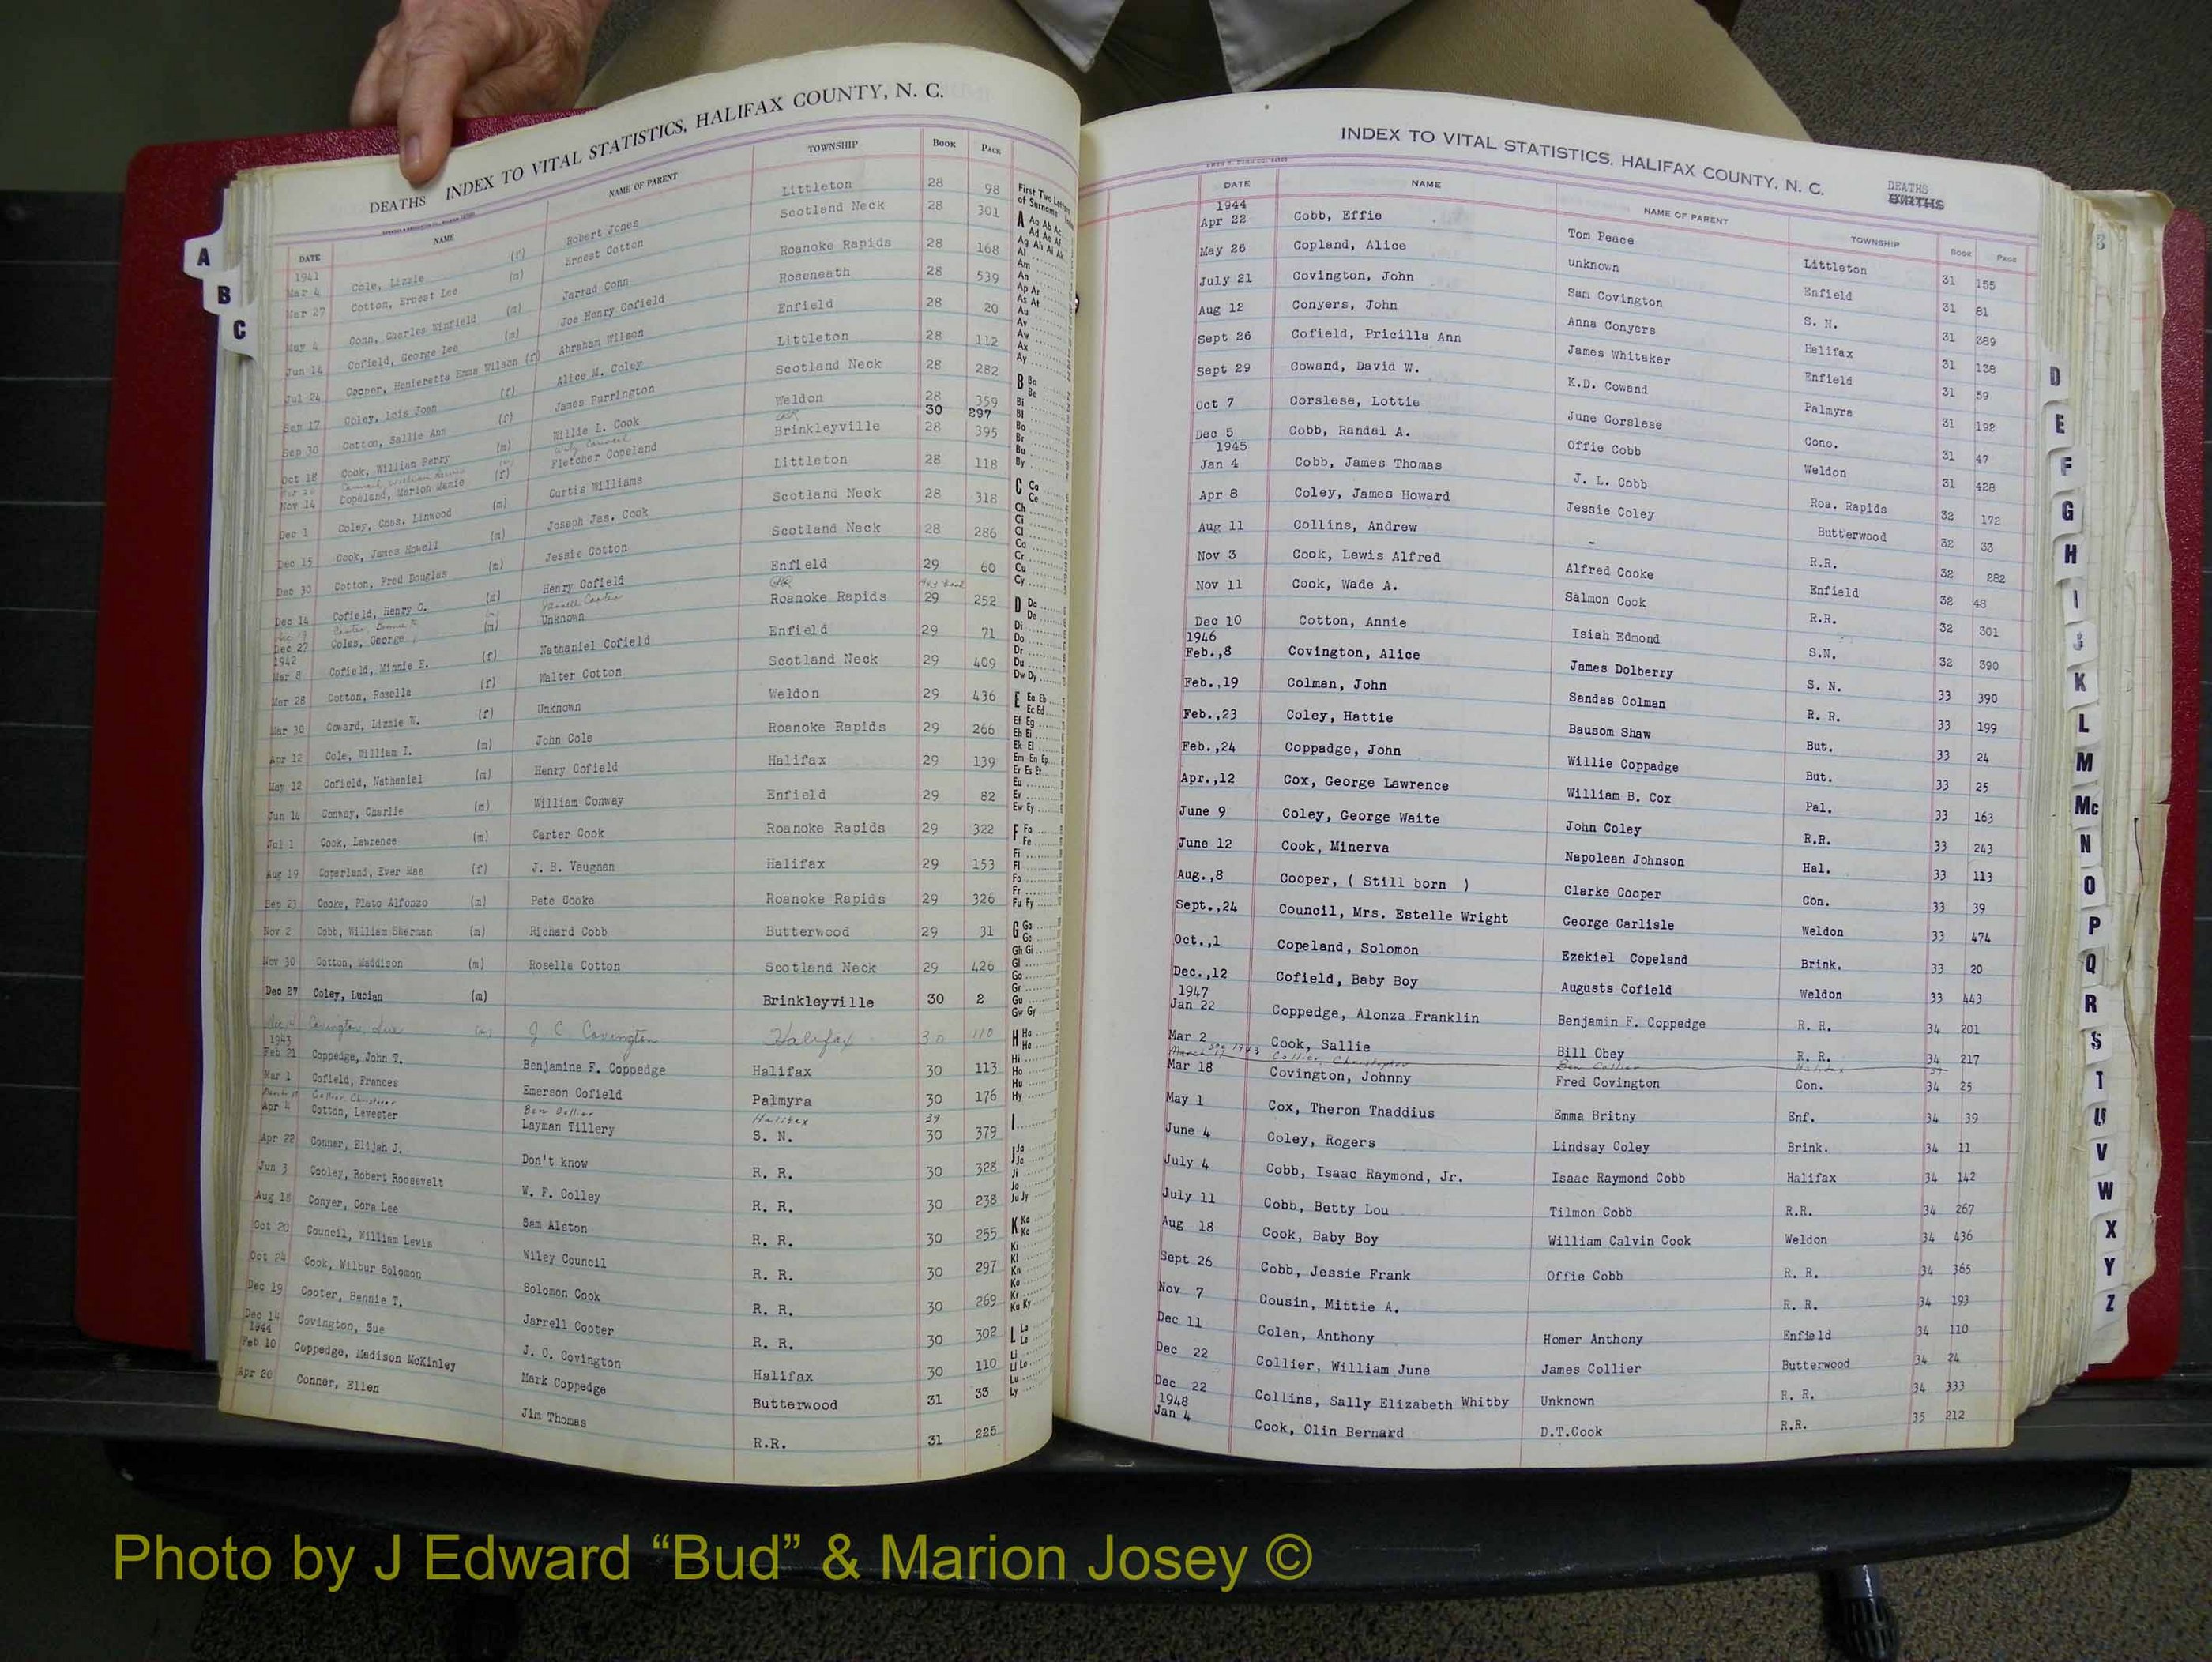 DEATHS INDEX TO VITAL STATISTICS, HALIFAX COUNTY, N. C.
DATE NAME NAME OF PARENT TOWNSHIP BOOK PAGE
1941
Mar 4 Cole, Lizzie (f) Robert Jones Littleton 28 98
Mar 27 Cotton, Ernest Lee (m) Ernest Cotton Scotland Neck 28 301
May 4 Conn, Charles Winfield (m) Jarrad Conn Roanoke Rapids 28 168
Jun 14 Cofield, George Lee (m) Joe Henry Cofield Roseneath 28 539
Jul 24 Cooper, Henieretta Emma Wilson (f) Abraham Wilson Enfield 28 20
Sep 17 Coley, Lois Joan (f) Alice M. Coley Littleton 28 112
Sep 30 Cotton, Sallie Ann (f) James Purrington Scotland Neck 28 282
Oct 18 Cook, William Perry (m) Willie L. Cook Weldon 28 359
30 297
Nov 14 Copeland, Marion Manie (f) Fletcher Copeland Brinkleyville 28 395
Dec 1 Coley, Chas. Linwood (m) Curtis Williams Littleton 28 118
Dec 15 Cook, James Howell (m) Joseph Jas. Cook Scotland Neck 28 318
Dec 30 Cotton, Fred Douglas (m) Jessie Cotton Scotland Neck 28 286
Dec 14 Cofield, Henry C. (m) Henry Cofield Enfield 29 60
Dec 27 Coles, George (m) Unknown Roanoke Rapids 29 252
1942
Mar 8 Cofield, Minnie E. (f) Nathaniel Cofield Enfield 29 71
Mar 28 Cotton, Rosella (f) Walter Cotton Scotland Neck 29 409
Mar 30 Coward, Lizzie W. (f) Unknown Weldon 29 436
Apr 12 Cole, William I. (m) John Cole Roanoke Rapids 29 266
May 12 Cofield, Nathaniel (m) Henry Cofield Halifax 29 139
Jun 14 Conway, Charlie (m) William Conway Enfield 29 82
Jul 1 Cook, Lawrence (m) Carter Cook Roanoke Rapids 29 322
Aug 19 Coperland, Ever Mae (f) J. B. Vaughan Halifax 29 153
Sep 23 Cooke, Plato Alfonzo (m) Pete Cooke Roanoke Rapids 29 326
Nov 2 Cobb, William Sherman (m) Richard Cobb Butterwood 29 31
Nov 30 Cotton, Maddison (m) Rosella Cotton Scotland Neck 29 426
Dec 27 Coley, Lucian (m) Brinkleyville 30 2
Covington, Sue J. C. Covington Halifax 30 110
1943
Feb 21 Coppedge, John T. Benjamine F. Coppedge Halifax 30 113
Mar 1 Cofield, Frances Emerson Cofield Palmyra 30 176
Collier, Christopher Ben Collier Halifax 39
Apr 4 Cotton, Levester Layman Tillery S. N. 30 379
Apr 22 Conner, Elijah J. Don't know R. R. 30 328
Jun 3 Cooley, Robert Roosevelt W. F. Colley R. R. 30 238
Aug 18 Conyer, Cora Lee Sam Alston R. R. 30 255
Oct 20 Council, William Lewis Wiley Council R. R. 30 297
Oct 24 Cook, Wilbur Solomon Solomon Cook R. R. 30 269
Dec 19 Cooter, Bennie T. Jarrell Cooter R. R. 30 302
Dec 14 Covington, Sue J. C. Covington Halifax 30 110
1944
Feb 10 Coppedge, Madison McKinley Mark Coppedge Butterwood 31 33
Apr 20 Conner, Ellen Jim Thomas R.R. 31 225
First Two Letters
of Surname
A
B
C
INDEX TO VITAL STATISTICS, HALIFAX COUNTY, N. C. DEATHS
BIRTHS
DATE NAME NAME OF PARENT TOWNSHIP BOOK PAGE
1944
Apr 22 Cobb, Effie Tom Peace Littleton 31 155
May 26 Copland, Alice unknown Enfield 31 81
July 21 Covington, John Sam Covington S. N. 31 389
Aug 12 Conyers, John Anna Conyers Halifax 31 138
Sept 26 Cofield, Pricilla Ann James Whitaker Enfield 31 59
Sept 29 Coward, David W. K.D. Cowand Palmyra 31 192
Oct 7 Corslese, Lottie June Corslese Cono. 31 47
Dec 5 Cobb, Randal A. Offie Cobb Weldon 31 428
1945
Jan 4 Cobb, James Thomas J. L. Cobb Roa. Rapids 32 172
Apr 8 Coley, James Howard Jessie Coley Butterwood 32 33
Aug 11 Collins, Andrew - R.R. 32 282
Nov 3 Cook, Lewis Alfred Alfred Cooke Enfield 32 48
Nov 11 Cook, Wade A. Salmon Cook R.R. 32 301
Dec 10 Cotton, Annie Isiah Edmond S.N. 32 390
1946
Feb.,8 Covington, Alice James Dolberry S. N. 33 390
Feb.,19 Colman, John Sandas Colman R. R. 33 199
Feb.,23 Coley, Hattie Bausom Shaw But. 33 24
Feb.,24 Coppadge, John Willie Coppadge But. 33 25
Apr.,12 Cox, George Lawrence William B. Cox Pal. 33 163
June 9 Coley, George Waite John Coley R.R. 33 243
June 12 Cook, Minerva Napolean Johnson Hal. 33 113
Aug.,8 Cooper, ( Still born ) Clarke Cooper Con. 33 39
Sept.,24 Council, Mrs. Estelle Wright George Carlisle Weldon 33 474
Oct.,1 Copeland, Solomon Ezekiel Copeland Brink. 33 20
Dec.,12 Cofield, Baby Boy Augusts Cofield Weldon 33 443
1947
Jan 22 Coppedge, Alonza Franklin Benjamin F. Coppedge R. R. 34 201
Mar 2 Cook, Sallie Bill Obey R. R. 34 217
March 17 see 1943 Collier, Christopher Ben Collier
Mar 18 Covington, Johnny Fred Covington Con. 34 25
May 1 Cox, Theron Thaddius Emma Britny Enf. 34 39
June 4 Coley, Rogers Lindsay Coley Brink. 34 11
July 4 Cobb, Isaac Raymond, Jr. Isaac Raymond Cobb Halifax 34 142
July 11 Cobb, Betty Lou Tilmon Cobb R.R. 34 267
Aug 18 Cook, Baby Boy William Calvin Cook Weldon 34 436
Sept 26 Cobb, Jessie Frank Offie Cobb R. R. 34 365
Nov 7 Cousin, Mittie A. R. R. 34 193
Dec 11 Colen, Anthony Homer Anthony Enfield 34 110
Dec 22 Collier, William June James Collier Butterwood 34 24
Dec 22 Collins, Sally Elizabeth Whitby Unknown R. R. 34 333
1948
Jan 4 Cook, Olin Bernard D.T.Cook R.R. 35 212
D
E
F
G
H
I
J
K
L
M
Mc
N
O
P
Q
R
S
T
U
V
W
X
Y
Z
Photo by J Edward “Bud” & Marion Josey ©